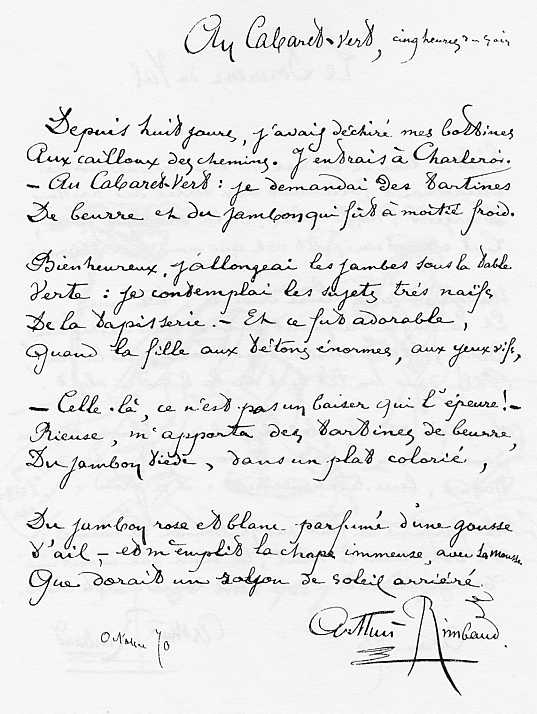 Au Cabaret-Vert, cinq heures du soir
Depuis huit jours, j'avais déchiré mes bottines
Aux cailloux des chemins. J'entrais à Charleroi.
– Au Cabaret-Vert : je demandai des tartines
De beurre et du jambon qui fût à moitié froid.
Bienheureux, j'allongeai les jambes sous la table
Verte : je contemplai les sujets très naïfs
De la tapisserie. – Et ce fut adorable,
Quand la fille aux tétons énormes, aux yeux vifs,
– Celle-là, ce n'est pas un baiser qui l'épeure ! –
Rieuse, m'apporta des tartines de beurre,
Du jambon tiède, dans un plat colorié,
Du jambon rose et blanc parfumé d'une gousse
D'ail, – et m'emplit la chope immense, avec sa mousse
Que dorait un rayon de soleil arriéré.
Arthur Rimbaud
Octobre 70